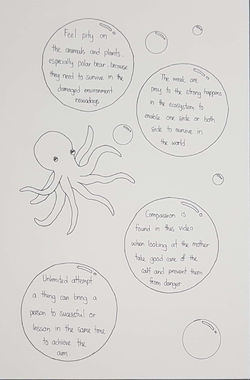 Feel pity on
the animals and plants
especially polar bear because
they need to survive in the
damaged environment
nowadays
The weak are
prey to the strong happens
in the ecosystem to
enable one side or both
side to survive in
the world
Compassion is
found in this video
when looking at the mother
take good care of the
calf and prevent them
from danger
Unlimited attempt
a thing can bring a
person to successful or
lesson in the same time
to achieve the
aim